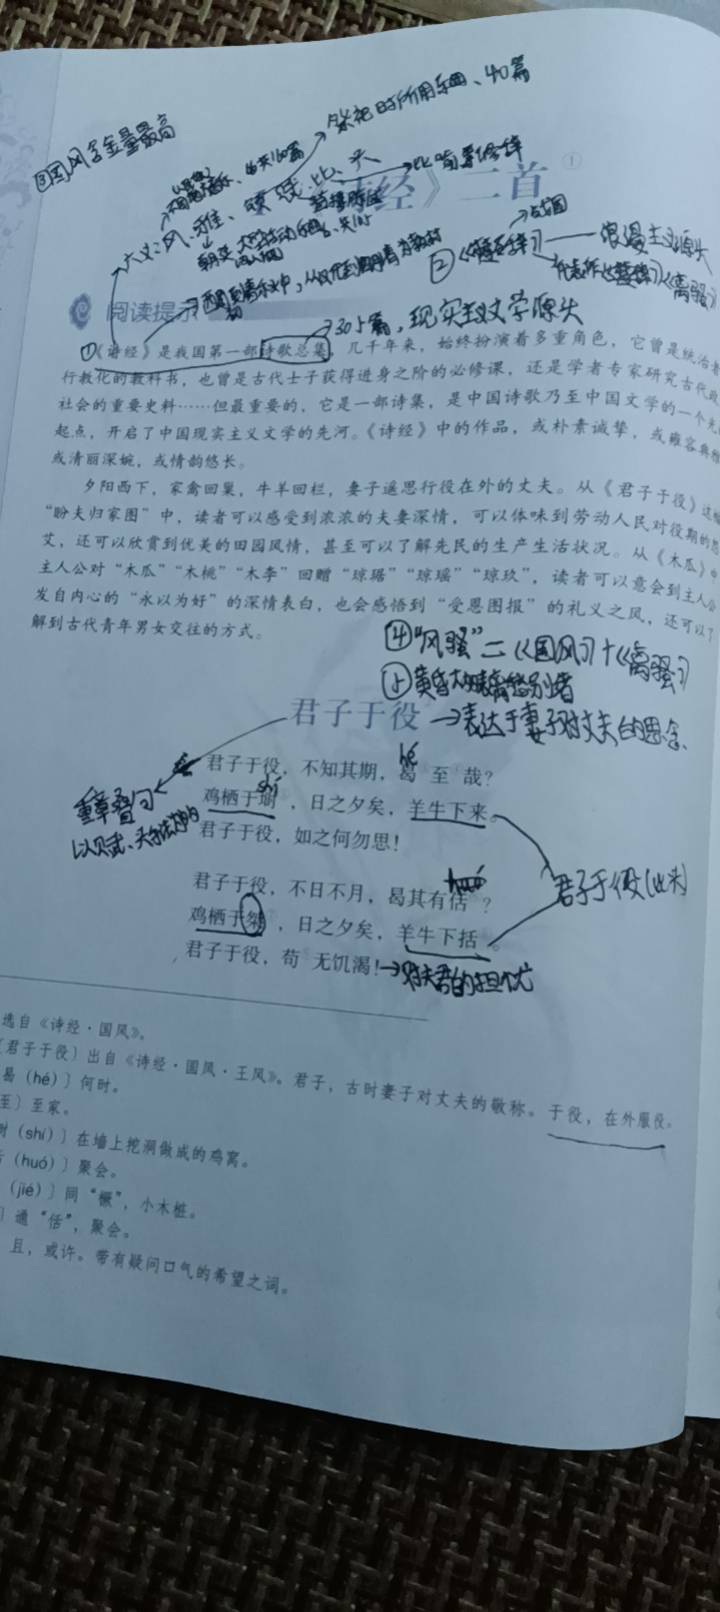 祭祀时所用乐曲、40篇
③国风含金量最高
六义：风、雅、颂 赋、比、兴
共160篇
比喻等修辞
《诗经》二首①
②《楚辞》——浪漫主义源头
代表作《离骚》
阅读提示
→305篇，现实主义文学源头
①《诗经》是我国第一部诗歌总集，几千年来，始终扮演着多重角色，它曾是统治者
行教化的教科书，也曾是古代士子获得进身之阶的必修课，还是学者专家研究古代政
社会的重要史料……但最重要的，它是一部诗集，是中国诗歌乃至中国文学的一个光
起点，开启了中国现实主义文学的先河。《诗经》中的作品，或朴素诚挚，或雍容典雅
或清丽深婉，或情韵悠长。
夕阳西下，家禽回巢，牛羊回栏，妻子遥思行役在外的丈夫。从《君子于役》这幅
“盼夫归家图”中，读者可以感受到浓浓的夫妻深情，可以体味到劳动人民对役期的怨
艾，还可以欣赏到优美的田园风情，甚至可以了解先民的生产生活状况。从《木瓜》中
主人公对“木瓜”“木桃”“木李”回赠“琼琚”“琼瑶”“琼玖”，读者可以意会到主人公
发自内心的“永以为好”的深情表白，也会感悟到“受恩图报”的礼义之风，还可以了
解到古代青年男女交往的方式。
④“风骚”＝《国风》＋《离骚》
君子于役 →表达于妻子对丈夫的思念、
重章叠句
君子于役，不知其期，曷至哉？
hé
鸡栖于埘，日之夕矣，羊牛下来。
shí
君子于役，如之何勿思！
君子于役，不日不月，曷其有佸？
huó
鸡栖于桀，日之夕矣，羊牛下括。
君子于役(比兴)
君子于役，苟无饥渴！→对夫君的担忧
选自《诗经·国风》。
〔君子于役〕出自《诗经·国风·王风》。君子，古时妻子对丈夫的敬称。于役，在外服役。
曷（hé）〕何时。
至〕至家。
埘（shí）〕在墙上挖洞做成的鸡窝。
佸（huó）〕聚会。
（jié）〕同“橛”，小木桩。
〕通“佸”，聚会。
且，或许。带有疑问口气的希望之词。